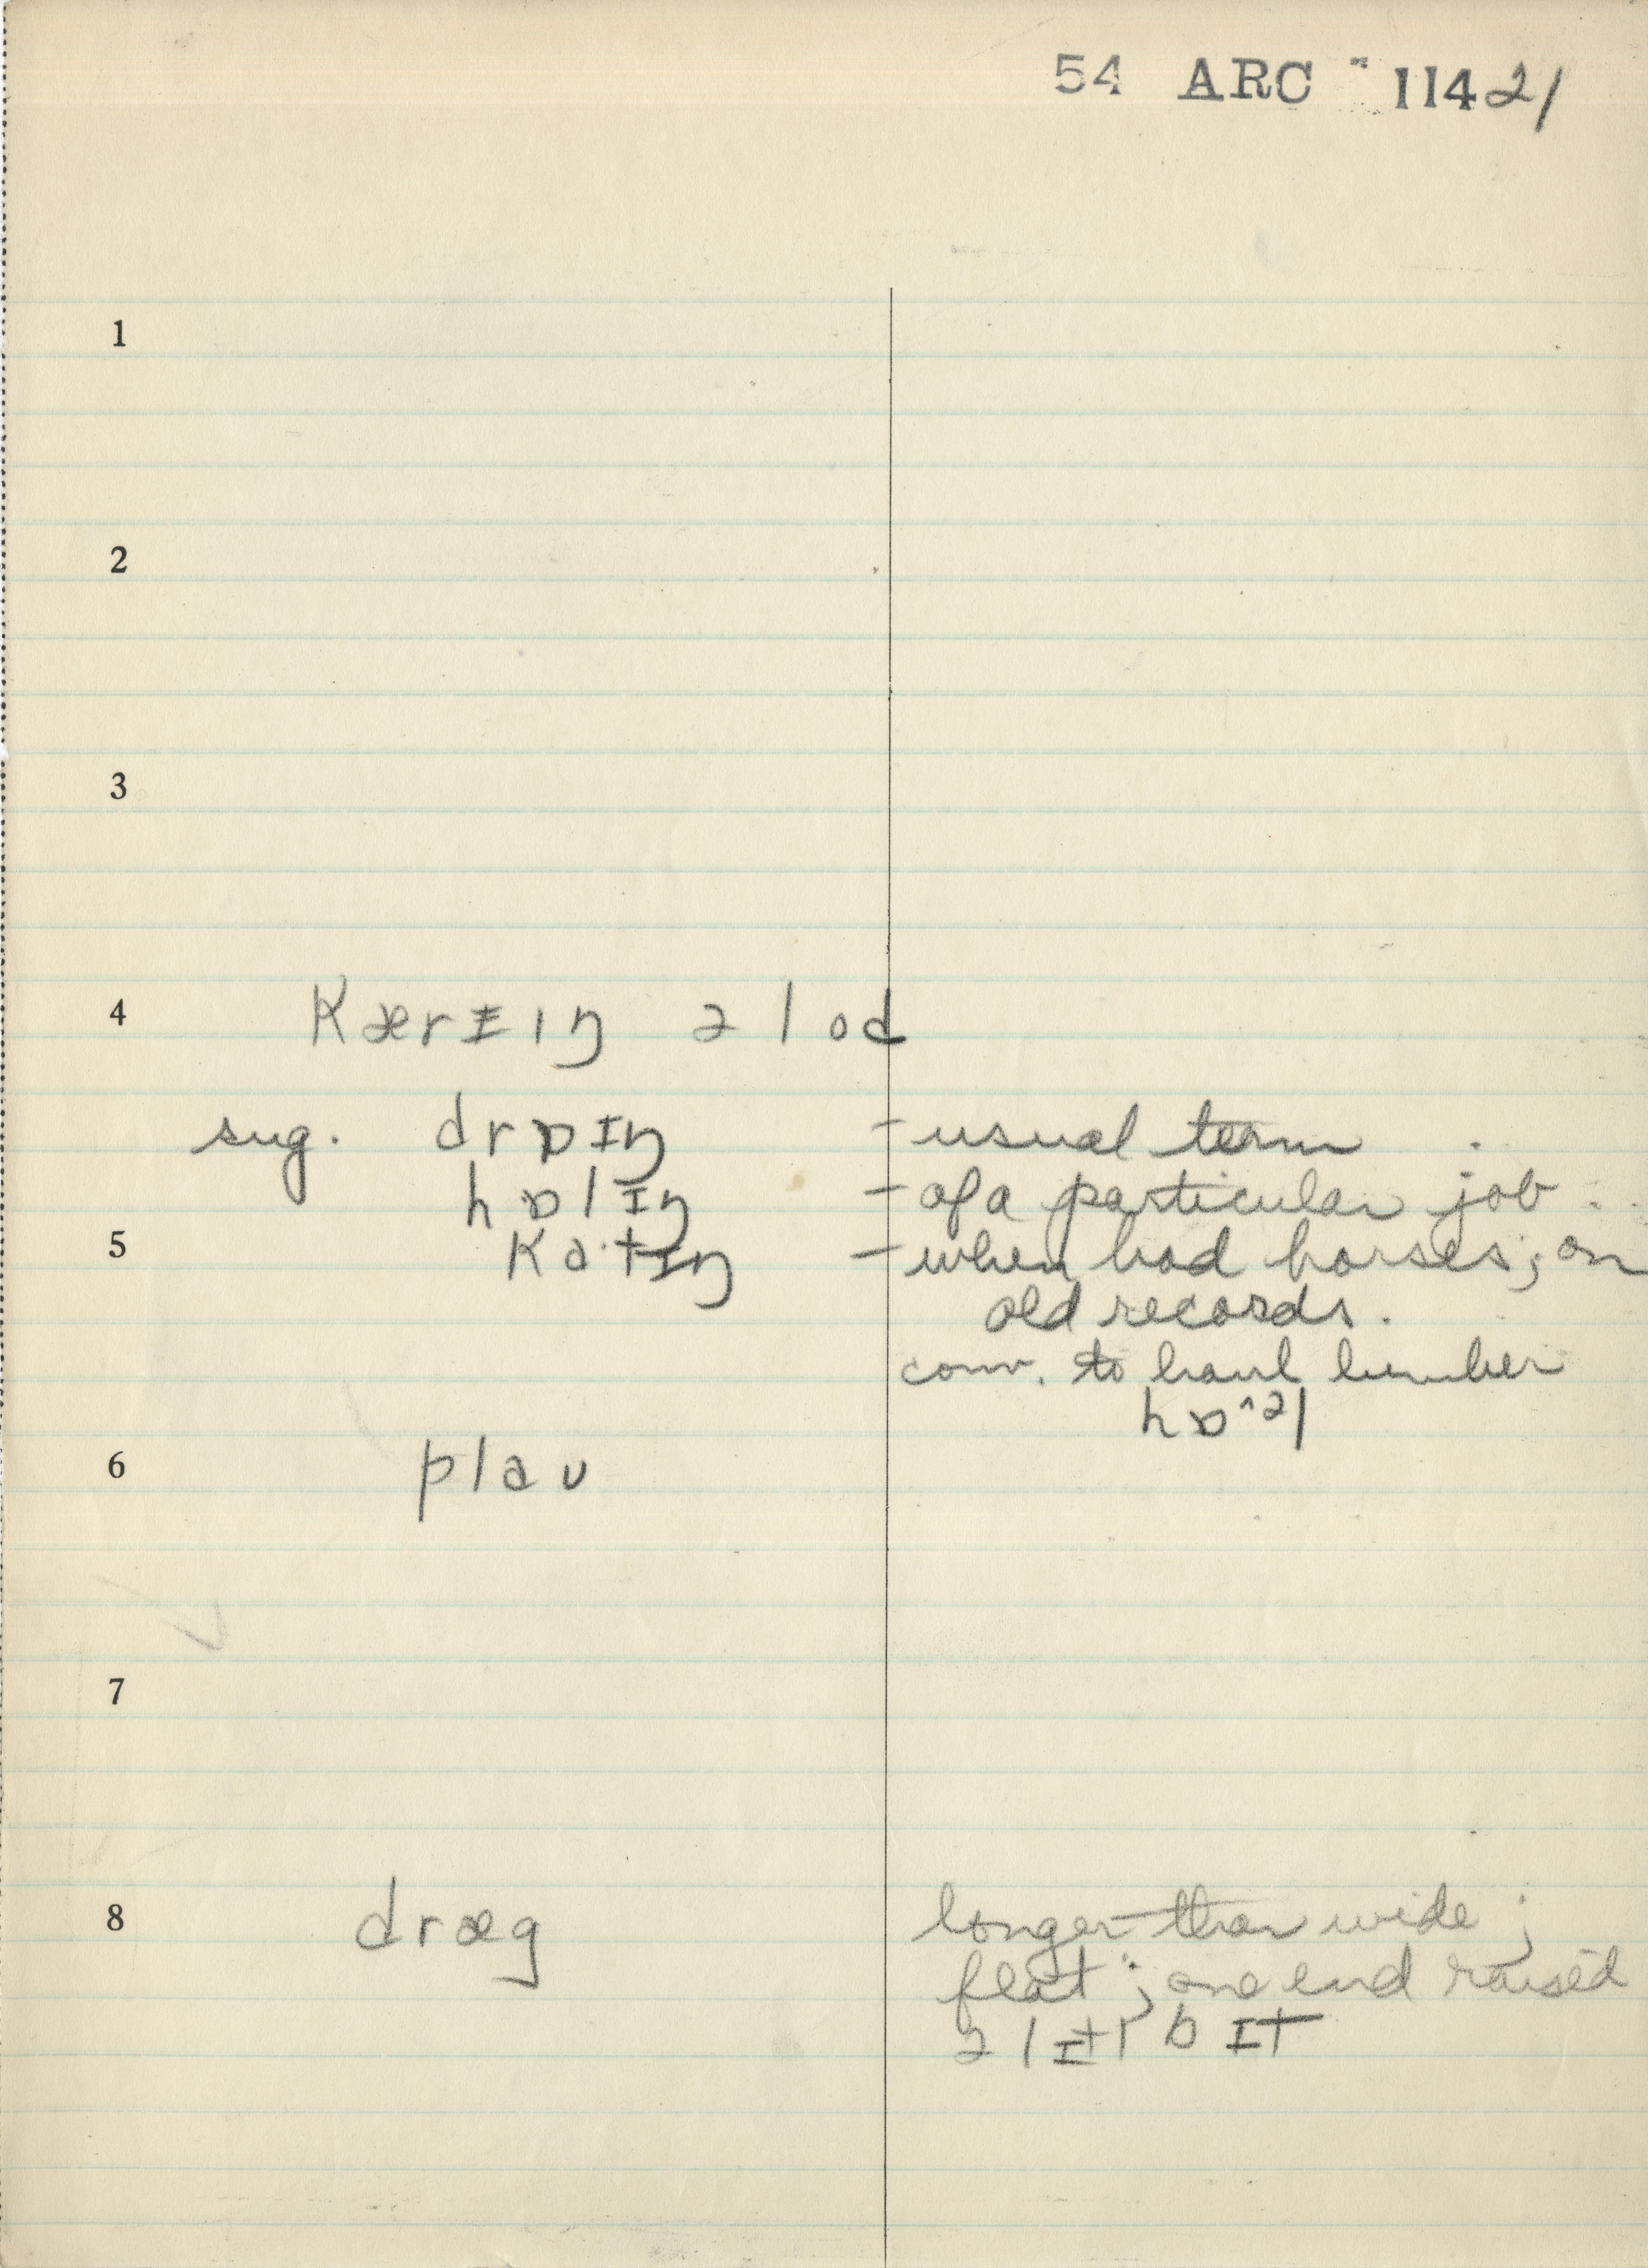 54 ARC 11421
1
2
3
4 kærɪɪŋ ə lod
sug. drɒɪŋ - usual term.
hɒlɪŋ - of a particular job.
5 ka·tɪŋ - when had horses; on
old records.
conv. to haul lumber
hɒ^əl
6 plaʊ
7
8 dræg longer than wide;
flat; one end raised
ə lɪtl bɪt